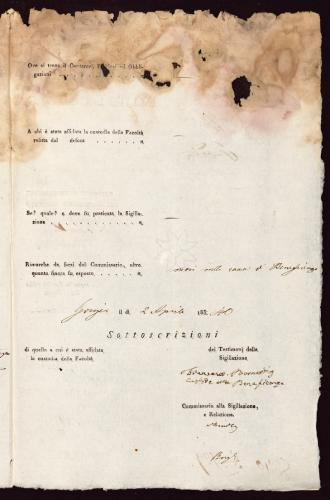 Ove si trova il Contante, Preziosi ed Obbli-
gazioni . . . . . . . . . . . . n.
A chi è stata affidata la custodia della Facoltà
relitta dal defont . . . . . . n.
Se? quale? e dove fu praticata la Sigilla-
zione . . . . . . . . . . . . n.
Rimarche da farsi del Commissario, oltre
quanto finora fu esposto . . . . n.
morì nella casa di Beneficenza
Gorizia li di 2 Aprile 183 40
Sottoscrizioni
di quello a cui è stata affidata
la custodia della Facoltà.
dei Testimonj della
Sigillazione.
Francesco
della Beneficenza
Commissario alla Sigillazione,
e Relazione.